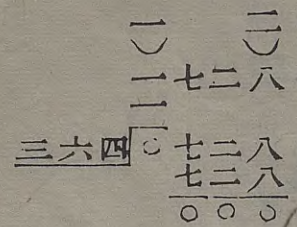 一) 二)
一 七二八
三六四 ○ 七二八
七二八
○○○